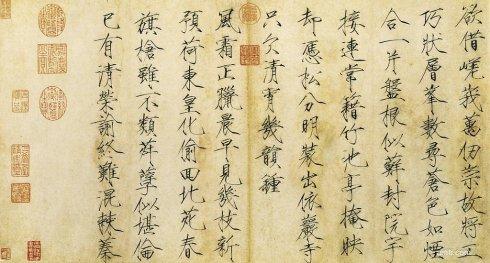 欲借嵯峨萬仞崇故將工
巧狀層峯數尋蒼色如煙
合一片盤根似蘚封院宇
接連常籍竹池亭掩映
却應松分明裝出依巖寺
只欠清宵幾韻鍾
風霜正臘晨早見幾枝新
預荷東皇化偷回北苑春
旗槍雖不類荈孽似堪倫
已有清榮諭終難混棘蓁